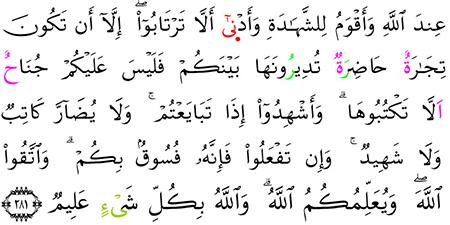 عِندَ ٱللَّهِ وَأَقْوَمُ لِلشَّهَٰدَةِ وَأَدْنَىٰٓ أَلَّا تَرْتَابُوٓا۟ ۖ إِلَّآ أَن تَكُونَ
تِجَٰرَةً حَاضِرَةً تُدِيرُونَهَا بَيْنَكُمْ فَلَيْسَ عَلَيْكُمْ جُنَاحٌ
أَلَّا تَكْتُبُوهَا ۗ وَأَشْهِدُوٓا۟ إِذَا تَبَايَعْتُمْ ۚ وَلَا يُضَآرَّ كَاتِبٌ
وَلَا شَهِيدٌ ۚ وَإِن تَفْعَلُوا۟ فَإِنَّهُۥ فُسُوقٌۢ بِكُمْ ۗ وَٱتَّقُوا۟
ٱللَّهَ ۖ وَيُعَلِّمُكُمُ ٱللَّهُ ۗ وَٱللَّهُ بِكُلِّ شَىْءٍ عَلِيمٌ ٢٨١